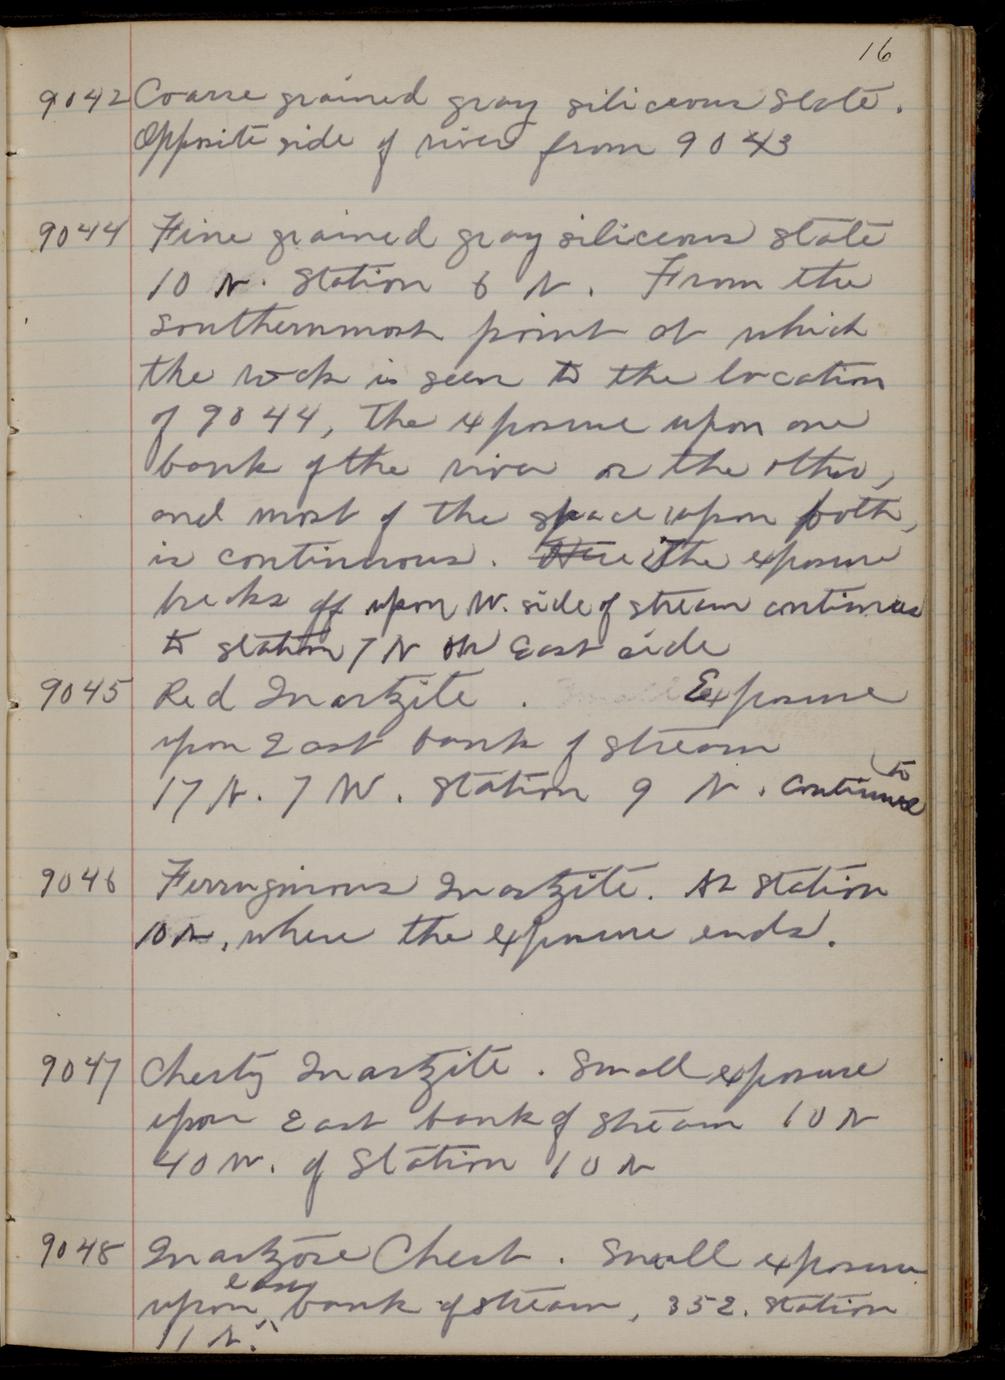 16
9042 Coarse grained gray siliceous slate.
Opposite side of river from 9043
9044 Fine grained gray siliceous slate
10 N. Station 6 N. From the
southernmost point at which
the rock is seen to the location
of 9044, the exposure upon one
bank of the river or the other,
and most of the space upon both,
is continuous. Here The exposure
breaks off upon W. side of stream continues
to station 7 N on East side
9045 Red Quartzite. Exposure
upon East bank of stream
17 N. 7 W. Station 9 N. continues to
9046 Ferruginous Quartzite. At Station
10 N, where the exposure ends.
9047 Cherty Quartzite. Small exposure
upon East bank of stream 10 N
40 W. of Station 10 N
9048 Quartzose Chert. Small exposure
upon east bank of stream, 35 E. Station
11 N.